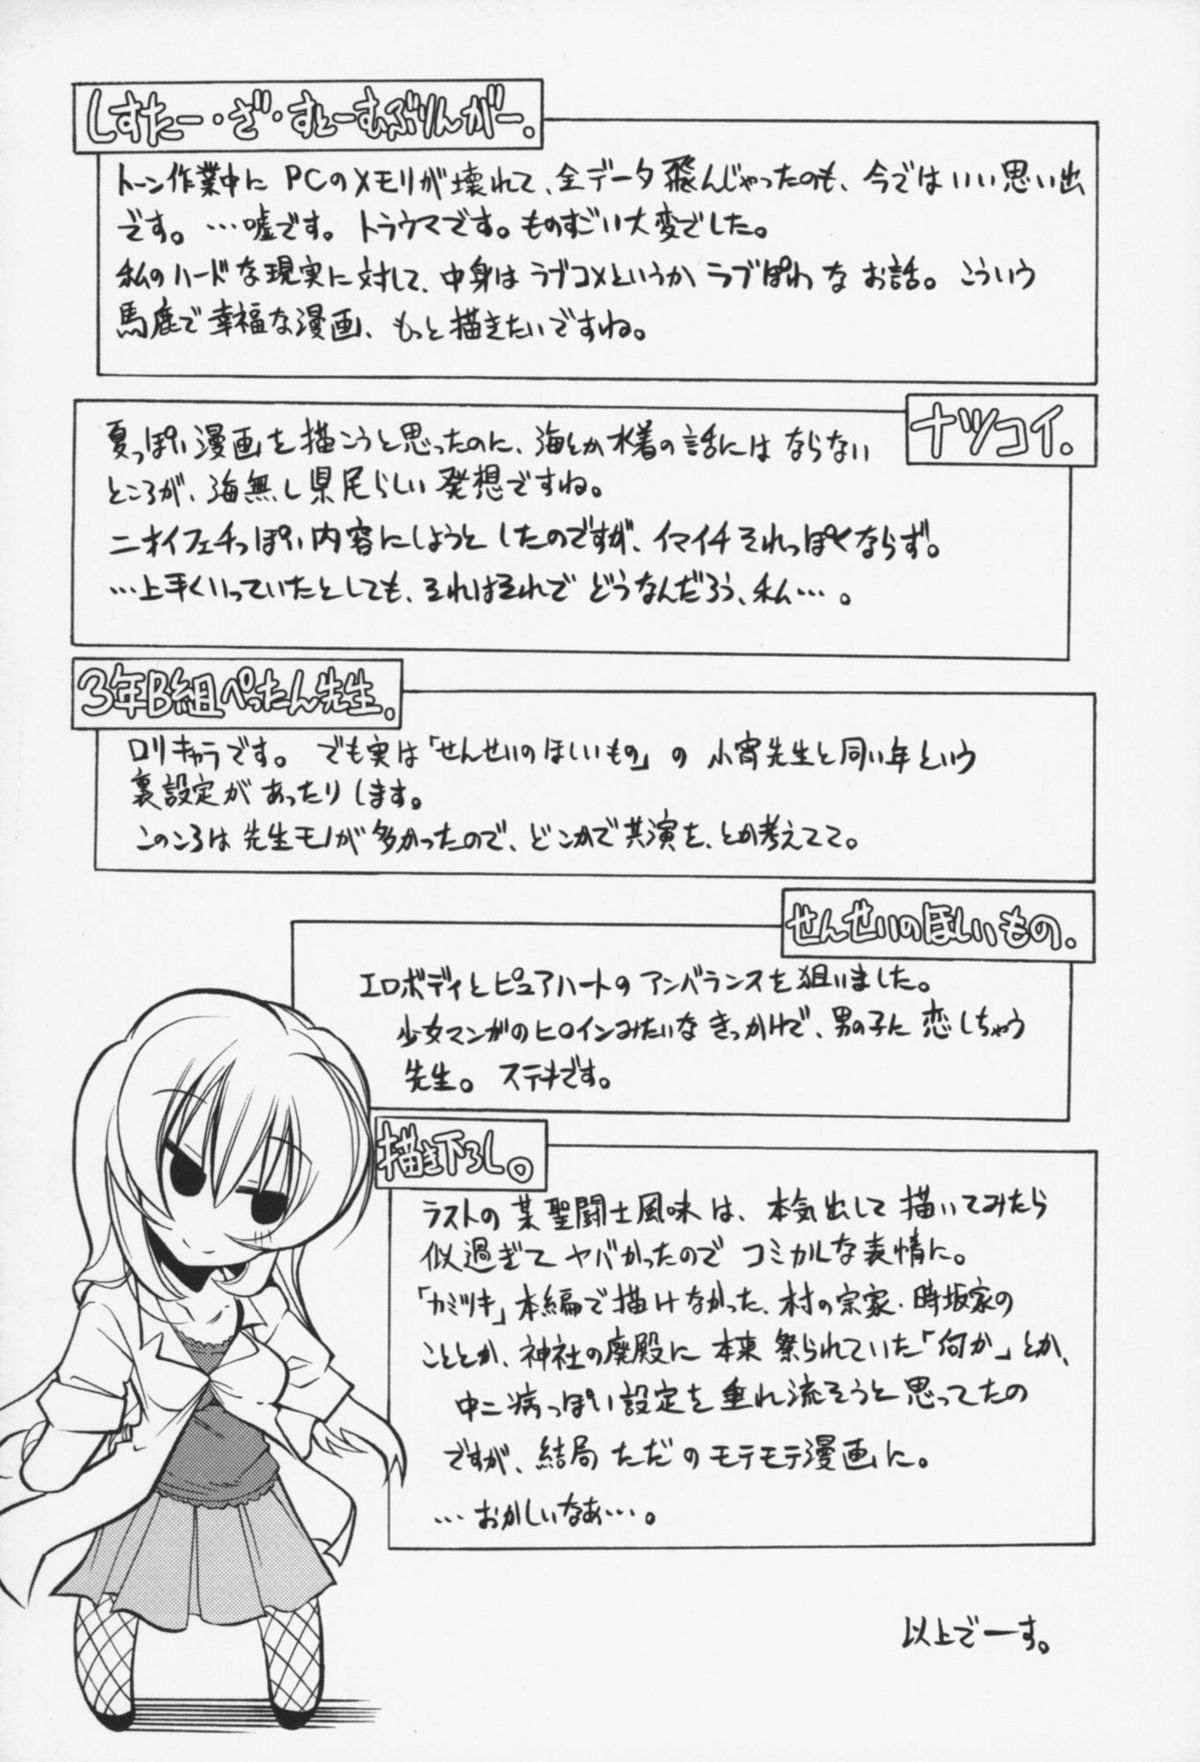 しすたー・ざ・すとーむぶりんがー.
トーン作業中に PCのメモリが壊れて、全データ飛んじゃったのも、今ではいい思い出
です。…嘘です。トラウマです。ものすごい大変でした。
私のハードな現実に対して、中身はラブコメというかラブぽわなお話。こういう
馬鹿で幸福な漫画、もっと描きたいですね。
ナツコイ.
夏っぽい漫画を描こうと思ったのに、海とか水着の話にはならない
ところが、海無し県民らしい発想ですね。
ニオイフェチっぽい内容にしようとしたのですが、イマイチそれっぽくならず。
…上手くいっていたとしても、それはそれでどうなんだろう、私…。
3年B組ぺったん先生.
ロリキャラです。でも実は「せんせいのほしいもの」の小宵先生と同い年という
裏設定があったりします。
このころは先生モノが多かったので、どこかで共演を、とか考えてて。
せんせいのほしいもの.
エロボディとピュアハートのアンバランスを狙いました。
少女マンガのヒロインみたいなきっかけで、男の子に恋しちゃう
先生。ステキです。
描き下ろし。
ラストの某聖闘士風味は、本気出して描いてみたら
似過ぎてヤバかったのでコミカルな表情に。
「カミツキ」本編で描けなかった、村の宗家・時坂家の
こととか、神社の廃殿に本来祭られていた「何か」とか、
中二病っぽい設定を垂れ流そうと思ってたの
ですが、結局ただのモテモテ漫画に。
…おかしいなあ…。
以上でーす。